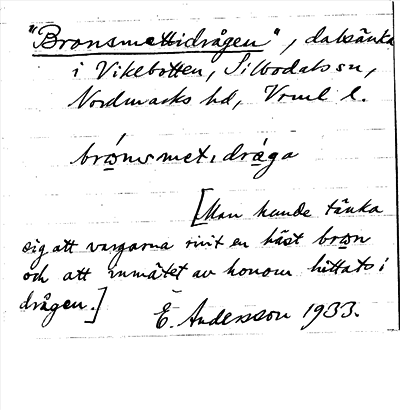 "Bronsmettidrågen", dalsänka
i Vikebotten, Silbodals sn,
Nordmarks hd, Vrml l.
brónsmet, dråga
[Man kunde tänka
sig att vargarna rivit en häst bron
och att inmätet av honom hittats i
drågen.]
E. Andersson 1933.